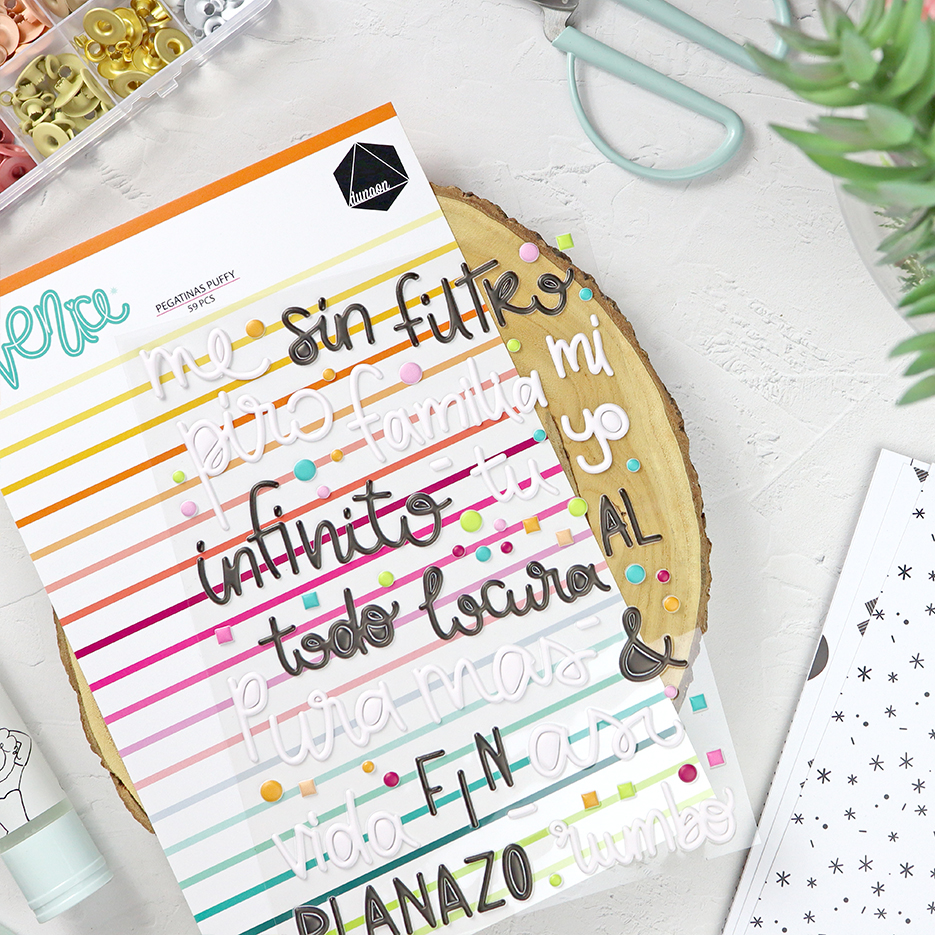 dunaon
PEGATINAS PUFFY
59 PCS
me sin filtro
piro familia mi
yo
infinito tu
AL
todo locura
&
pura mas
FIN asi
vida
PLANAZO rumbo